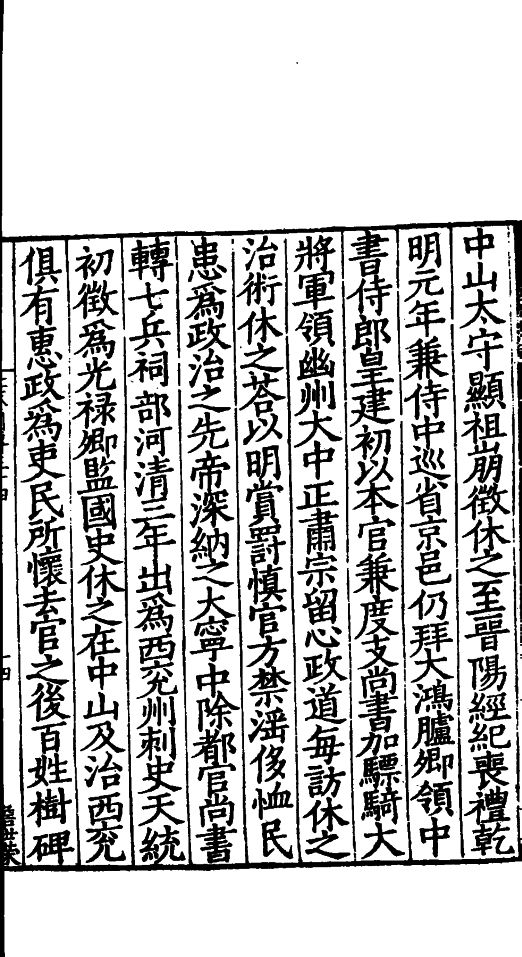 中山太守顯祖崩徵休之至晉陽經紀喪禮乾
明元年兼侍中巡省京邑仍拜大鴻臚卿領中
書侍郎皇建初以本官兼度支尚書加驃騎大
將軍領幽州大中正肅宗留心政道每訪休之
治術休之荅以明賞罸慎官方禁淫侈恤民
患爲政治之先帝深納之大寧中除都官尚書
轉七兵祠部河清三年出爲西兖州刺史天統
初徵爲光禄卿監國史休之在中山及治西兖
俱有惠政爲吏民所懷去官之後百姓樹碑